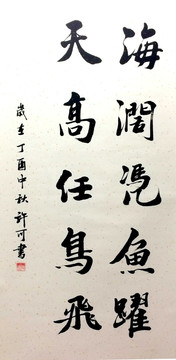 海阔凭鱼躍
天高任鳥飛
歲在丁酉中秋許可書